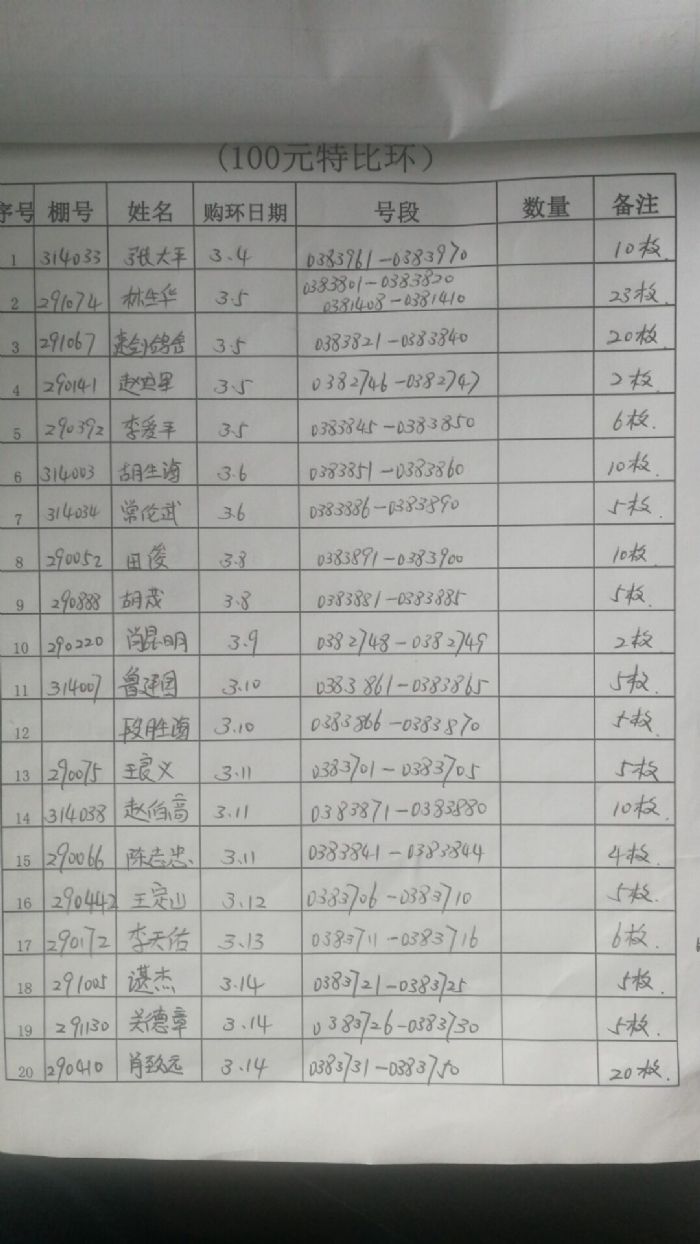 (100元特比环)
序号 棚号 姓名 购环日期 号段 数量 备注
1 314033 张大平 3.4 0383961-0383970 10枚.
2 291074 林生华 3.5 0383801-0383820 23枚.
0381408-0381410
3 291067 3.5 0383821-0383840 20枚.
4 290141 3.5 0382746-0382747 2枚.
5 290392 李爱平 3.5 0383845-0383850 6枚.
6 314003 胡生海 3.6 0383851-0383860 10枚.
7 314034 常伦武 3.6 0383886-0383890 5枚.
8 290052 田俊 3.8 0383891-0383900 10枚.
9 290888 胡茂 3.8 0383881-0383885 5枚.
10 290220 肖昆明 3.9 0382748-0382749 2枚.
11 314007 鲁建国 3.10 0383861-0383865 5枚.
12 段胜海 3.10 0383866-0383870 5枚.
13 290075 王良义 3.11 0383701-0383705 5枚
14 314038 3.11 0383871-0383880 10枚.
15 290066 陈志忠 3.11 0383841-0383844 4枚.
16 290442 王定山 3.12 0383706-0383710 5枚.
17 290172 李天佑 3.13 0383711-0383716 6枚.
18 291005 谌杰 3.14 0383721-0383725 5枚.
19 291130 关德章 3.14 0383726-0383730 5枚.
20 290410 肖致远 3.14 0383731-0383750 20枚.